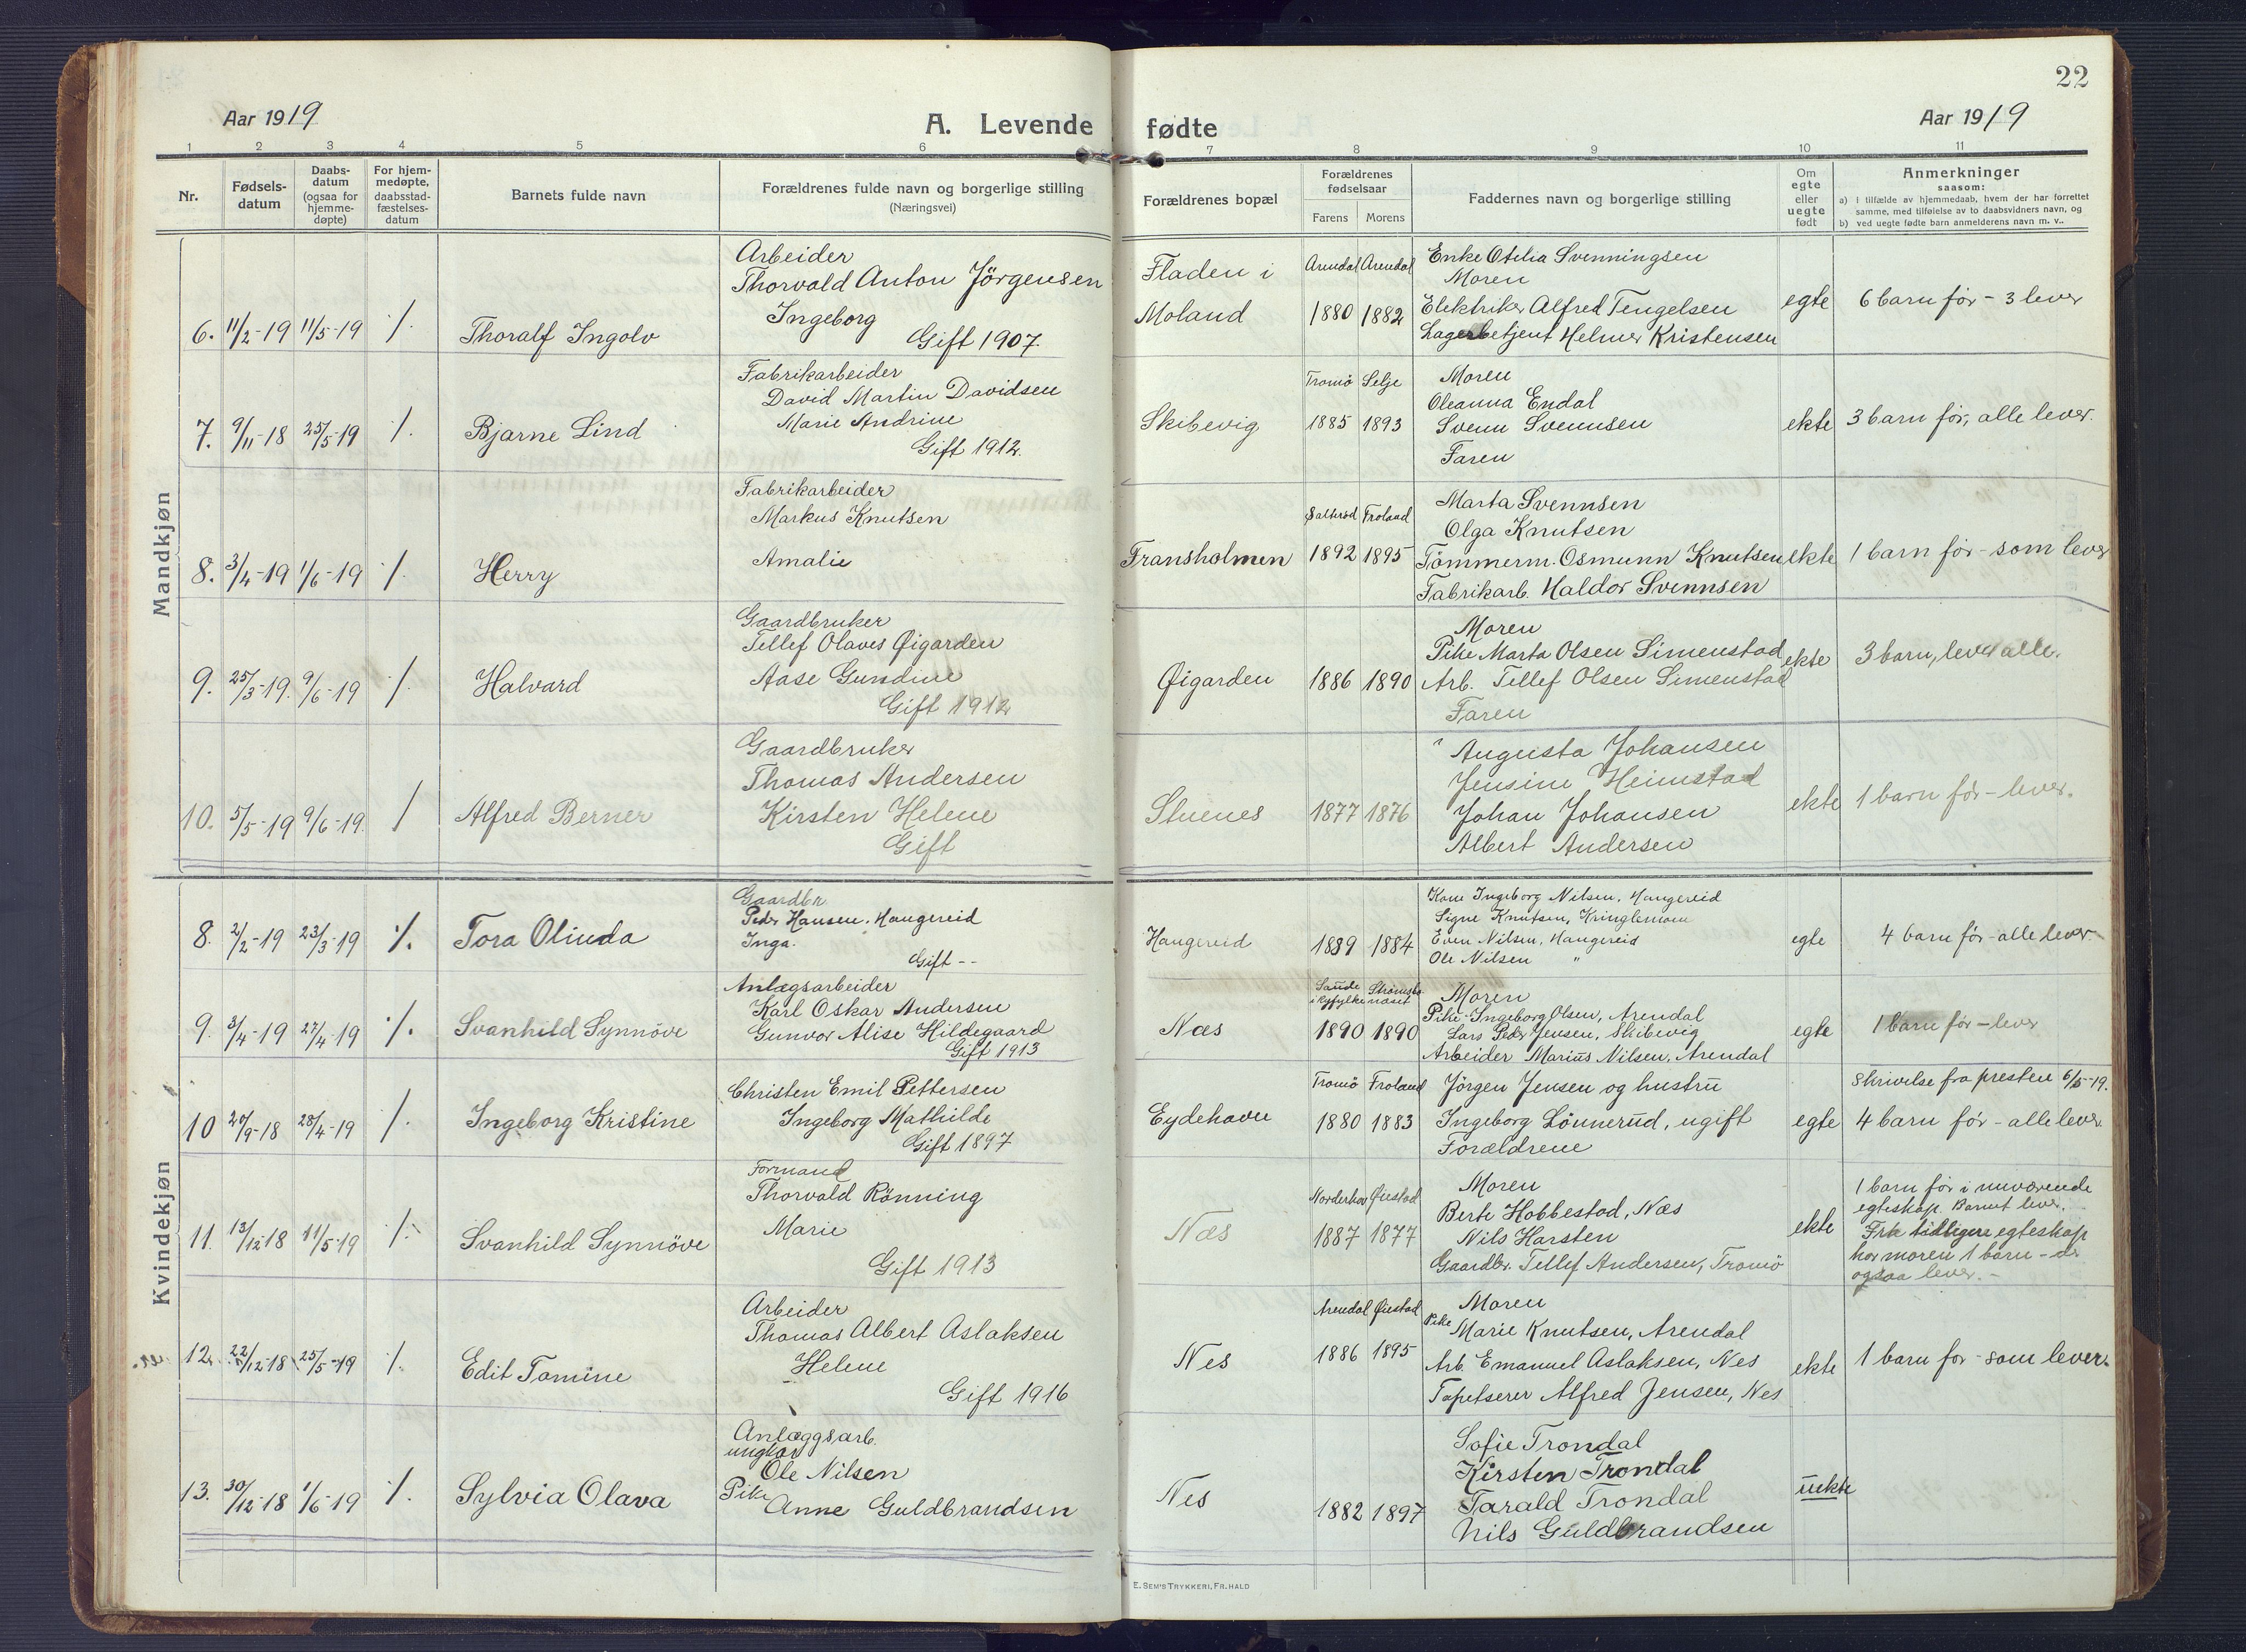 22
Aar 1919
A. Levende fødte
Aar 1919
1 2 3 4 5 6 7 8 9 10 11
Nr.
Fødsels-
datum
Daabs-
datum
(ogsaa for
hjemme-
døpte)
For hjem-
medøpte,
daabsstad-
fæstelses-
datum
Barnets fulde navn
Forældrenes fulde navn og borgerlige stilling
(Næringsvei)
Forældrenes bopæl
Forældrenes
fødselsaar
Farens Morens
Faddernes navn og borgerlige stilling
Om
egte
eller
uegte
født
Anmerkninger
saasom:
a) i tilfælde av hjemmedaab, hvem der har forrettet
samme, med tilføielse av to daabsvidners navn, og
b) ved uegte fødte barn anmelderens navn m. v..
Mandkjøn
6. 11/2-19 11/5-19 ./. Thoralf Ingolv
Arbeider
Thorvald Anton Jörgensen
Ingeborg
Gift 1907.
Fladen i
Moland
Arendal Arendal
1880 1882
Enke Otilia Svenningsen
Moren
Elektriker Alfred Tengelsen
Lagerbetjent Helmer Kristensen
egte
6 barn før - 3 lever
7. 9/11-18 25/5-19 ./. Bjarne Lind
Fabrikarbeider
David Martin Davidsen
Marie Andrine
Gift 1912.
Skibevig
Tromö Selje
1885 1893
Moren
Oleanna Endal
Svenn Svennsen
Faren
ekte
3 barn før, alle lever.
8. 3/4-19 1/6-19 ./. Herry
Fabrikarbeider
Markus Knutsen
Amalie
Fransholmen
Salterød Froland
1892 1895
Marta Svennsen
Olga Knutsen
Tömmerm. Osmunn Knutsen
Fabrikarb. Haldor Svennsen
ekte
1 barn før - som lever
9. 25/3-19. 9/6-19 ./. Halvard
Gaardbruker
Tellef Olaves Øigarden
Aase Gundine
Gift 1912
Øigarden
1886 1890
Moren
Pike Marta Olsen Simenstad
Arb. Tellef Olsen Simenstad
Faren
ekte
3 barn, lever alle.
10. 5/5-19 9/6-19. / Alfred Berner
Gaardbruker
Thomas Andersen
Kirsten Helene
Gift
Stuenes
1877 1876
Augusta Johansen
Jensine Heimstad
Johan Johansen
Albert Andersen
ekte
1 barn før - lever.
Kvindekjøn
8. 2/2-19 23/3-19 ./. Tora Olinda
Gaardbr.
Peder Hansen, Haugereid
Inga.
Gift --
Haugereid
1889 1884
Kone Ingeborg Nilsen, Haugereid
Signe Knutsen, Kringlemoen
Even Nilsen, Haugereid
Ole Nilsen "
egte
4 barn før - alle lever.
9. 3/4-19 27/4-19 ./. Svanhild Synnöve
Anlægsarbeider
Karl Oskar Andersen
Gunvor Alise Hildegaard
Gift 1913
Næs
Saude
i Ryfylke
1890 1890
Moren
Pike Ingeborg Olsen, Arendal
Lars Peder Jensen, Skibevig
Arbeider Marius Nilsen, Arendal
egte
1 barn før - lever
10 20/9-18 28/4-19 ./. Ingeborg Kristine
Christen Emil Pettersen
Ingeborg Mathilde
Gift 1897
Eydehavn
Tromö Froland
1880 1883
Jörgen Jensen og hustru
Ingeborg Lönnerud, ugift
Forældrene
egte
Skrivelse fra presten 6/5-19.
4 barn før - alle lever.
11. 13/12-18 11/5-19 ./. Svanhild Synnöve
Formand
Thorvald Rönning
Marie
Gift 1913
Næs
Norderhov Øiestad
1887 1877
Moren
Berte Hobbestad, Næs
Nils Harsten
Gaardbr. Tellef Andersen, Tromö
ekte
1 barn før i nuværende
egteskap. Barnet lever.
Fra tidligere egteskap
har moren 1 barn - der
ogsaa lever. -
12. 22/12-18 25/5-19 ./. Edit Tomine
Arbeider
Thomas Albert Aslaksen
Helene
Gift 1916
Nes
Arendal Øiestad
1886 1895
Moren
Pike Marie Knutsen, Arendal
Arb. Emanuel Aslaksen, Nes
Tapetserer Alfred Jensen, Nes
ekte
1 barn før - som lever.
13. 30/12-18 1/6-19 ./. Sylvia Olava
Anlæggsarb.
ungkar
Ole Nilsen
Pike Anne Guldbrandsen
Nes
1882 1897
Sofie Trondal
Kirsten Trondal
Tarald Trondal
Nils Guldbrandsen
uekte
E. SEM'S TRYKKERI, FR.HALD